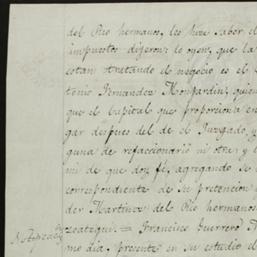 del Rio hermanos, les hice saber el
impuestos dijeron: lo oyen, que la
estan tratando el negocio es el
tonio Fernandez Monjardin, quien
que el Capital que proporciona en
gar despues del de el Juzgado, y
guna de refaccionario ni otra y
mi de que doy fé, agregando se
correspondiente de su pretencion
der Martinez del Rio hermanos
Francisco Guerrero
mo dia, presente en su estudio el